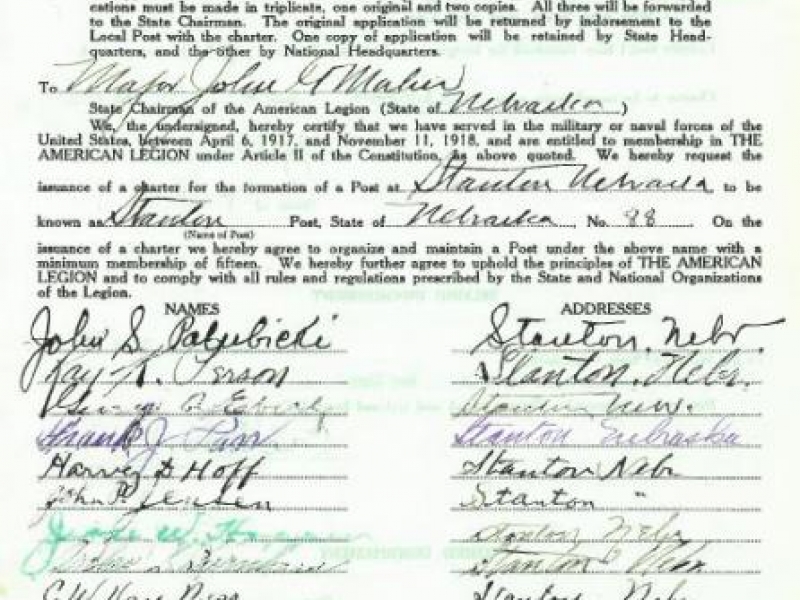 cations must be made in triplicate, one original and two copies. All three will be forwarded
to the State Chairman. The original application will be returned by indorsement to the
Local Post with the charter. One copy of application will be retained by State Head-
quarters, and the other by National Headquarters.
To Major John G Maher
State Chairman of the American Legion (State of Nebraska )
We, the undersigned, hereby certify that we have served in the military or naval forces of the
United States, between April 6, 1917, and November 11, 1918, and are entitled to membership in THE
AMERICAN LEGION under Article II of the Constitution, as above quoted. We hereby request the
issuance of a charter for the formation of a Post at Stanton Nebraska to be
known as Stanton Post, State of Nebraska, No. 88 On the
(Name of Post)
issuance of a charter we hereby agree to organize and maintain a Post under the above name with a
minimum membership of fifteen. We hereby further agree to uphold the principles of THE AMERICAN
LEGION and to comply with all rules and regulations prescribed by the State and National Organizations
of the Legion.
NAMES ADDRESSES
John S Stanton, Nebr.
Ray Person Stanton, Nebr.
George Stanton Nebr.
Frank J Stanton Nebraska
Harvey D Hoff Stanton Nebr
John P. Jensen Stanton "
W. Stanton Nebr
Stanton Nebr
Stanton Nebr